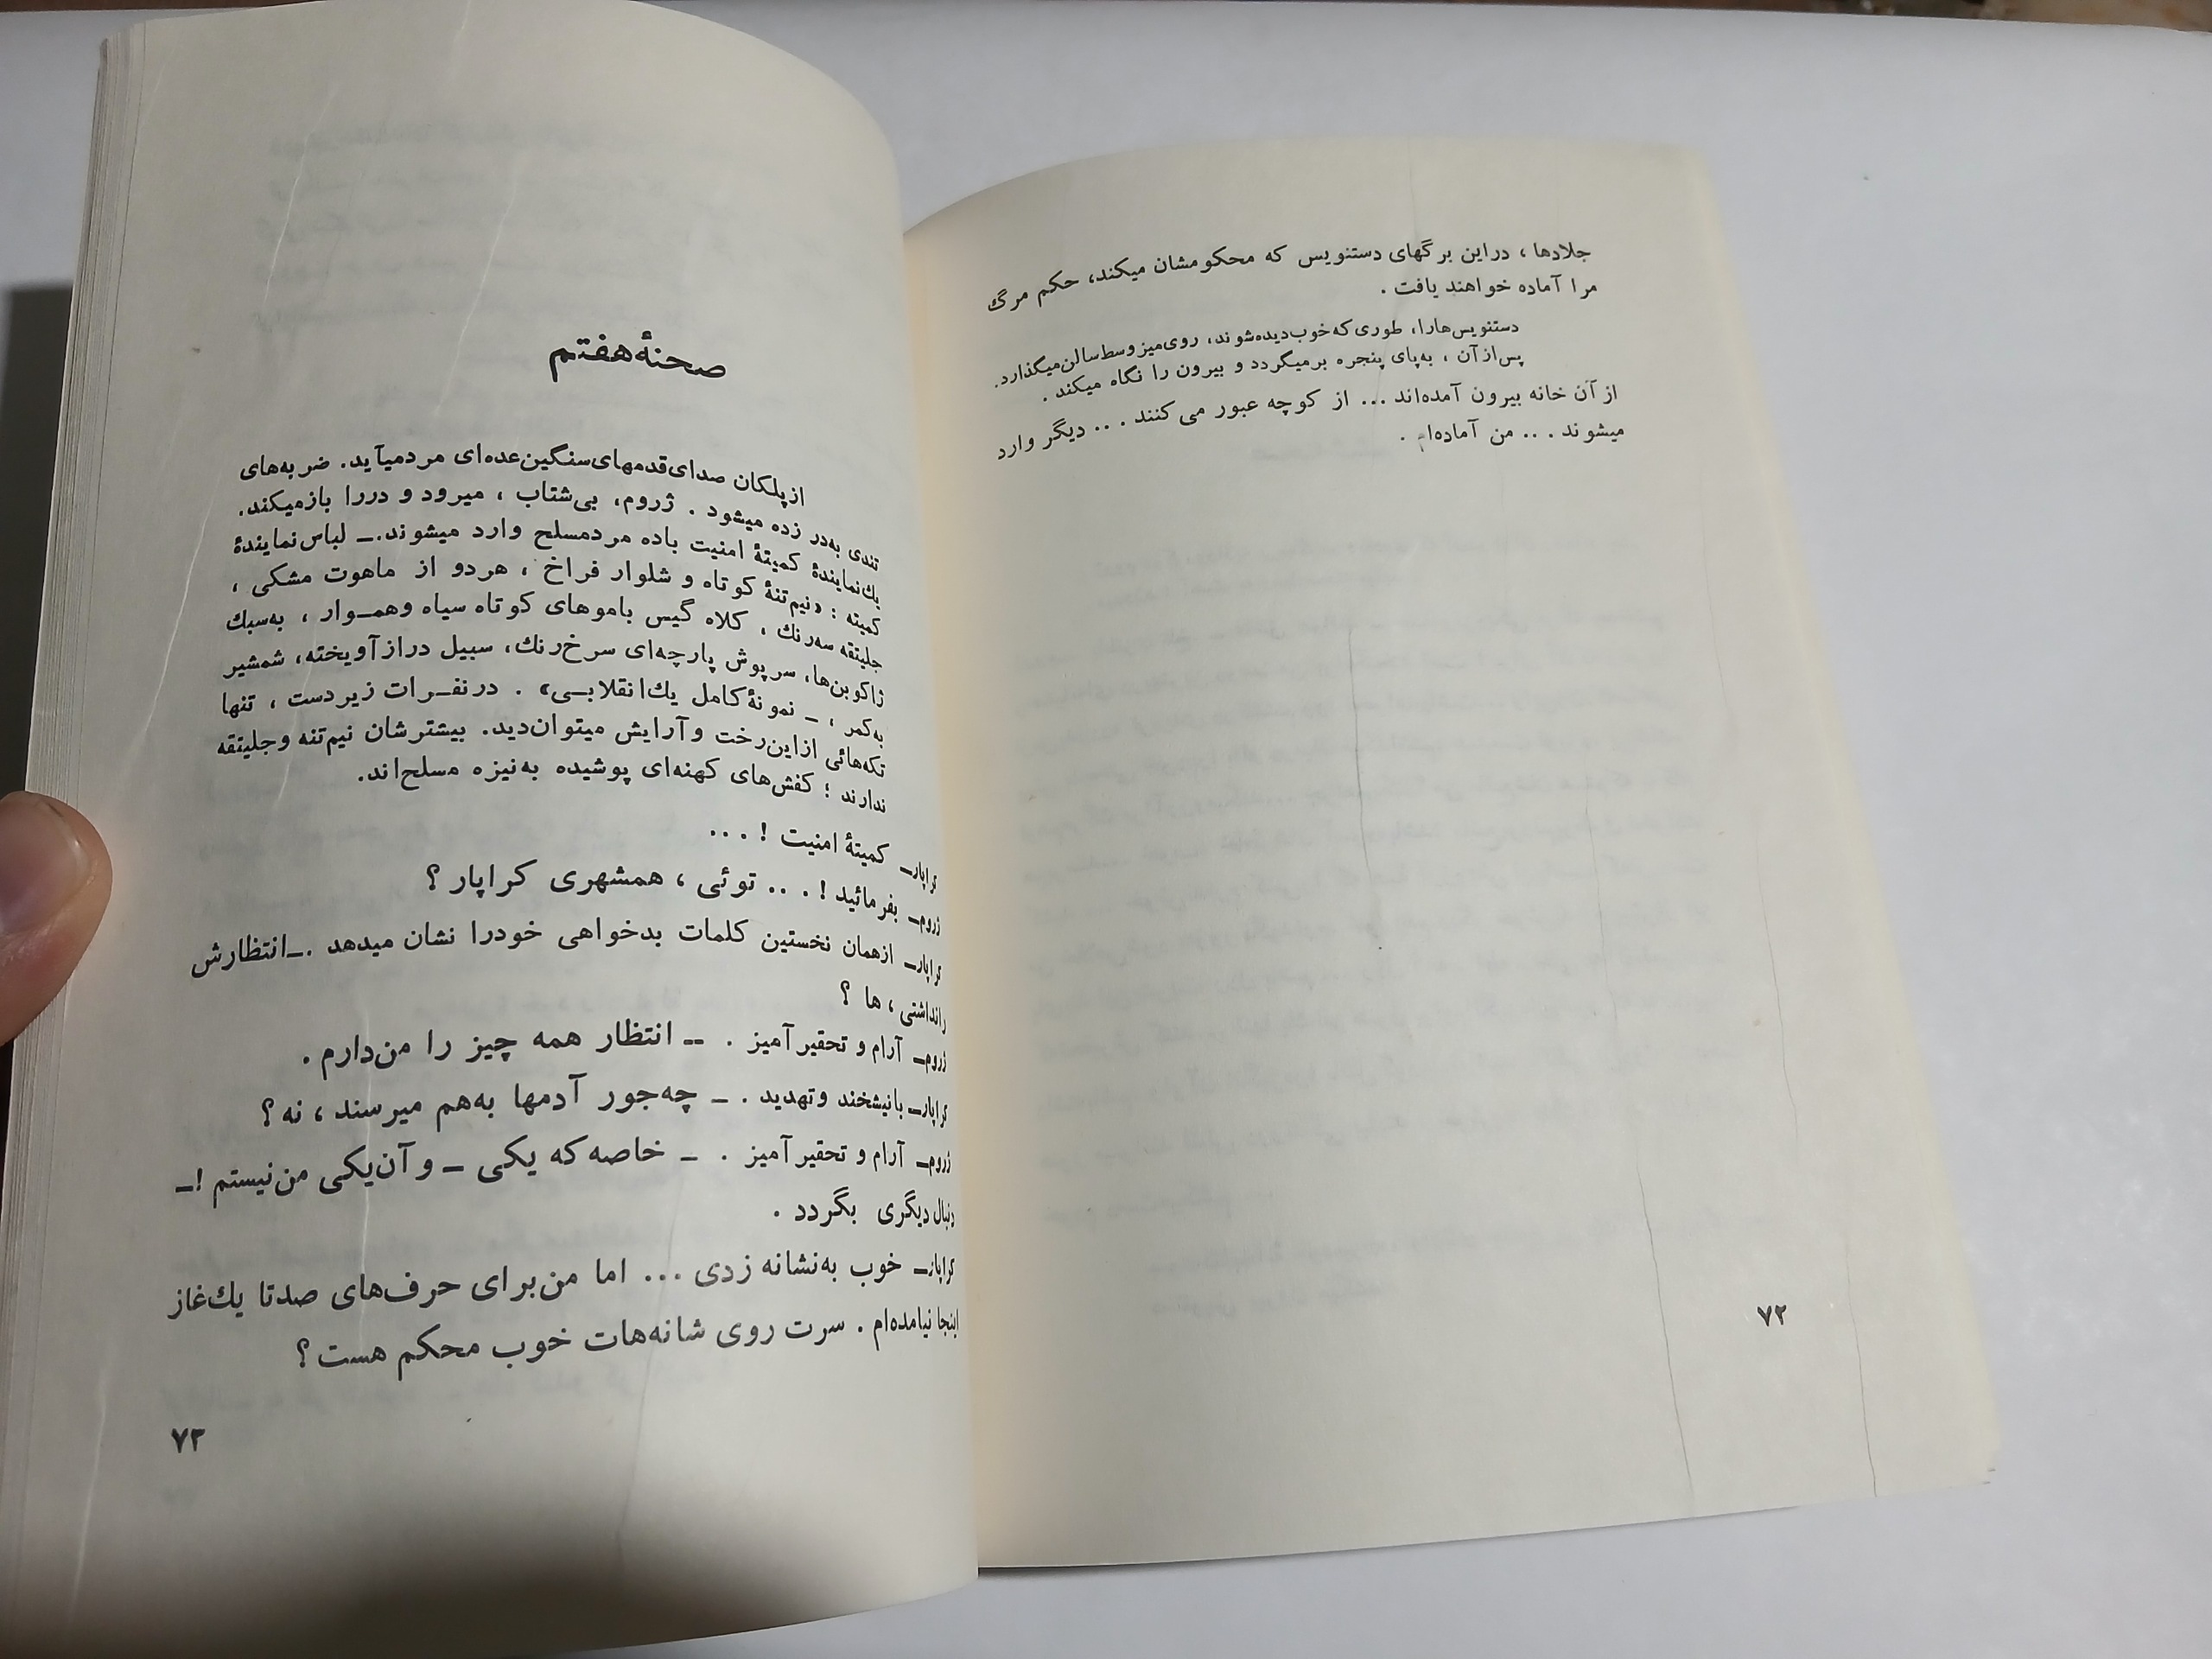 جلادها ، دراین برگهای دستنویس که محکومشان میکند، حکم مرگ
مرا آماده خواهند یافت .
دستنویس‌هارا، طوری که خوب دیده‌شوند، روی‌میز وسط‌سالن‌میگذارد.
پس‌از آن ، به‌پای پنجره برمیگردد و بیرون را نگاه میکند .
از آن خانه بیرون آمده‌اند ... از کوچه عبور می کنند ... دیگر وارد
میشوند ... من آماده‌ام .
۷۲
صحنهٔ هفتم
از پلکان صدای قدمهای سنگین عده‌ای مردمیآید. ضربه‌های
تندی به‌در زده میشود . ژروم، بی‌شتاب ، میرود و دررا بازمیکند.
یك‌نمایندهٔ کمیتهٔ امنیت باده مردمسلح وارد میشوند._ لباس‌نمایندهٔ
کمیته : «نیم‌تنهٔ کوتاه و شلوار فراخ ، هردو از ماهوت مشکی ،
جلیتقه سه‌رنك ، کلاه گیس باموهای کوتاه سیاه وهمـوار ، به‌سبك
ژاکوبن‌ها، سرپوش پارچه‌ای سرخ‌رنك، سبیل درازآویخته، شمشیر
به‌کمر ، _ نمونهٔ‌کامل یك‌انقلابـی» . درنفـرات زیردست ، تنها
تکه‌هائی ازاین‌رخت وآرایش میتوان‌دید. بیشترشان نیم‌تنه وجلیتقه
ندارند ؛ کفش‌های کهنه‌ای پوشیده به‌نیزه مسلح‌اند.
کراپار_ کمیتهٔ امنیت ! ...
ژروم_ بفرمائید ! ... توئی ، همشهری کراپار ؟
کراپار_ ازهمان نخستین کلمات بدخواهی خودرا نشان میدهد ._انتظارش
رانداشتی ، ها ؟
ژروم_ آرام و تحقیرآمیز . _ انتظار همه چیز را من‌دارم .
کراپار_ بانیشخند وتهدید . _ چه‌جور آدمها به‌هم میرسند ، نه ؟
ژروم_ آرام و تحقیرآمیز . _ خاصه که یکی _ و آن‌یکی من‌نیستم !_
دنبال دیگری بگردد .
کراپار_ خوب به‌نشانه زدی ... اما من‌برای حرف‌های صدتا یك‌غاز
اینجا نیامده‌ام . سرت روی شانه‌هات خوب محکم هست ؟
۷۳